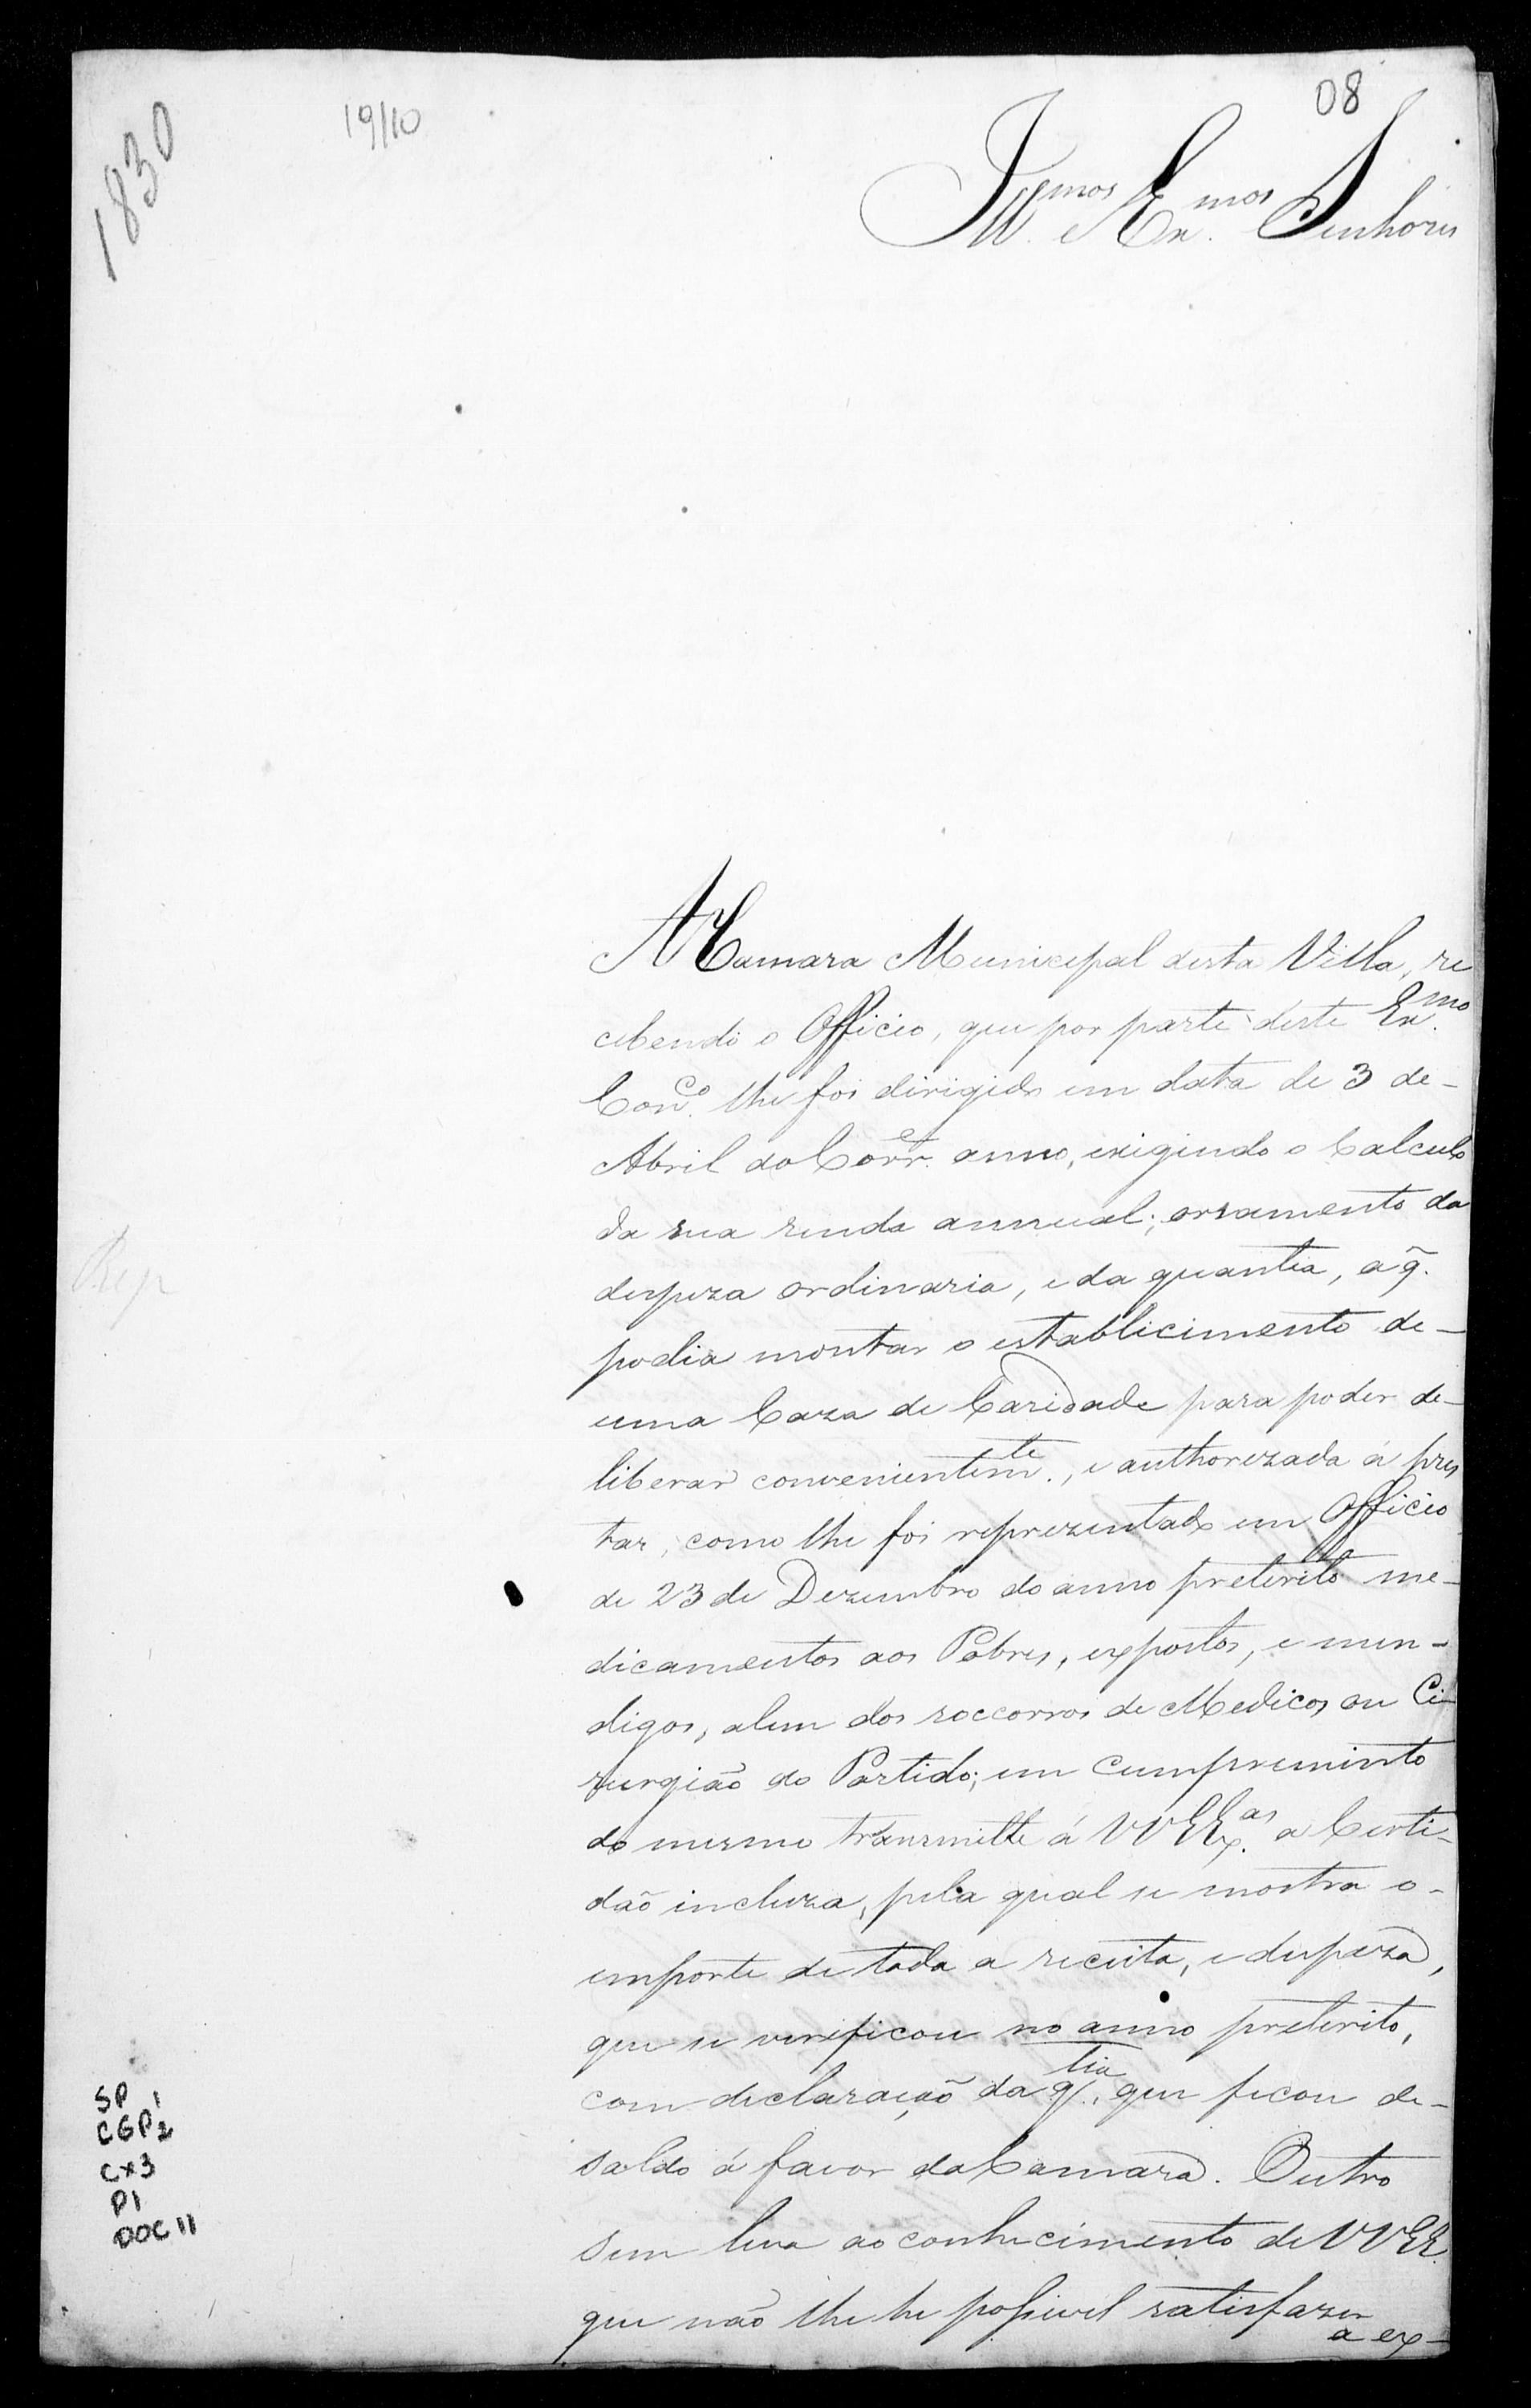 08
19/10
1830
Ill.mos e Ex.mos Senhores
A Camara Municipal desta Villa, re
cebendo o Officio, que por parte deste Ex.mo
Con.co lhe foi dirigido em data de 3 de-
Abril do Corr.e anno, exigindo o Calculo
da sua renda annual; orsamento da
despeza ordinaria, e da quantia, a q̃.
podia montar o establicimento de-
uma Caza de Caridade para poder de-
liberar convenientem.te, e authorizada á pres
tar, como lhe foi reprezentado em Officio
de 23 de Dezembro do anno preterito me-
dicamentos aos Pobres, expostos, e men-
digos, alem dos soccorros de Medicos ou Ci-
rurgião do Partido; em cumpremento
do mesmo transmitte á VVEEx.as a Certi-
dão incluza, pela qual se mostra o-
emporte de toda a receita, e despeza,
que se verificou no anno preterito,
com declaração da q.tia, que ficou de-
saldo á favor da Camara. Outro
sim leva ao conhecimento de VVEE.
que não lhe he possivel satisfazer
a ex-
Rep
SP 1
CGP2
Cx3
P1
DOC 11